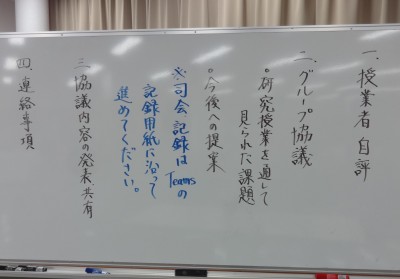 一、授業者自評
二、グループ協議
・研究授業を通して
見られた課題
・今後への提案
※司会記録はTeamsの
記録用紙に沿って
進めてください。
三、協議内容の発表、共有
四、連絡事項